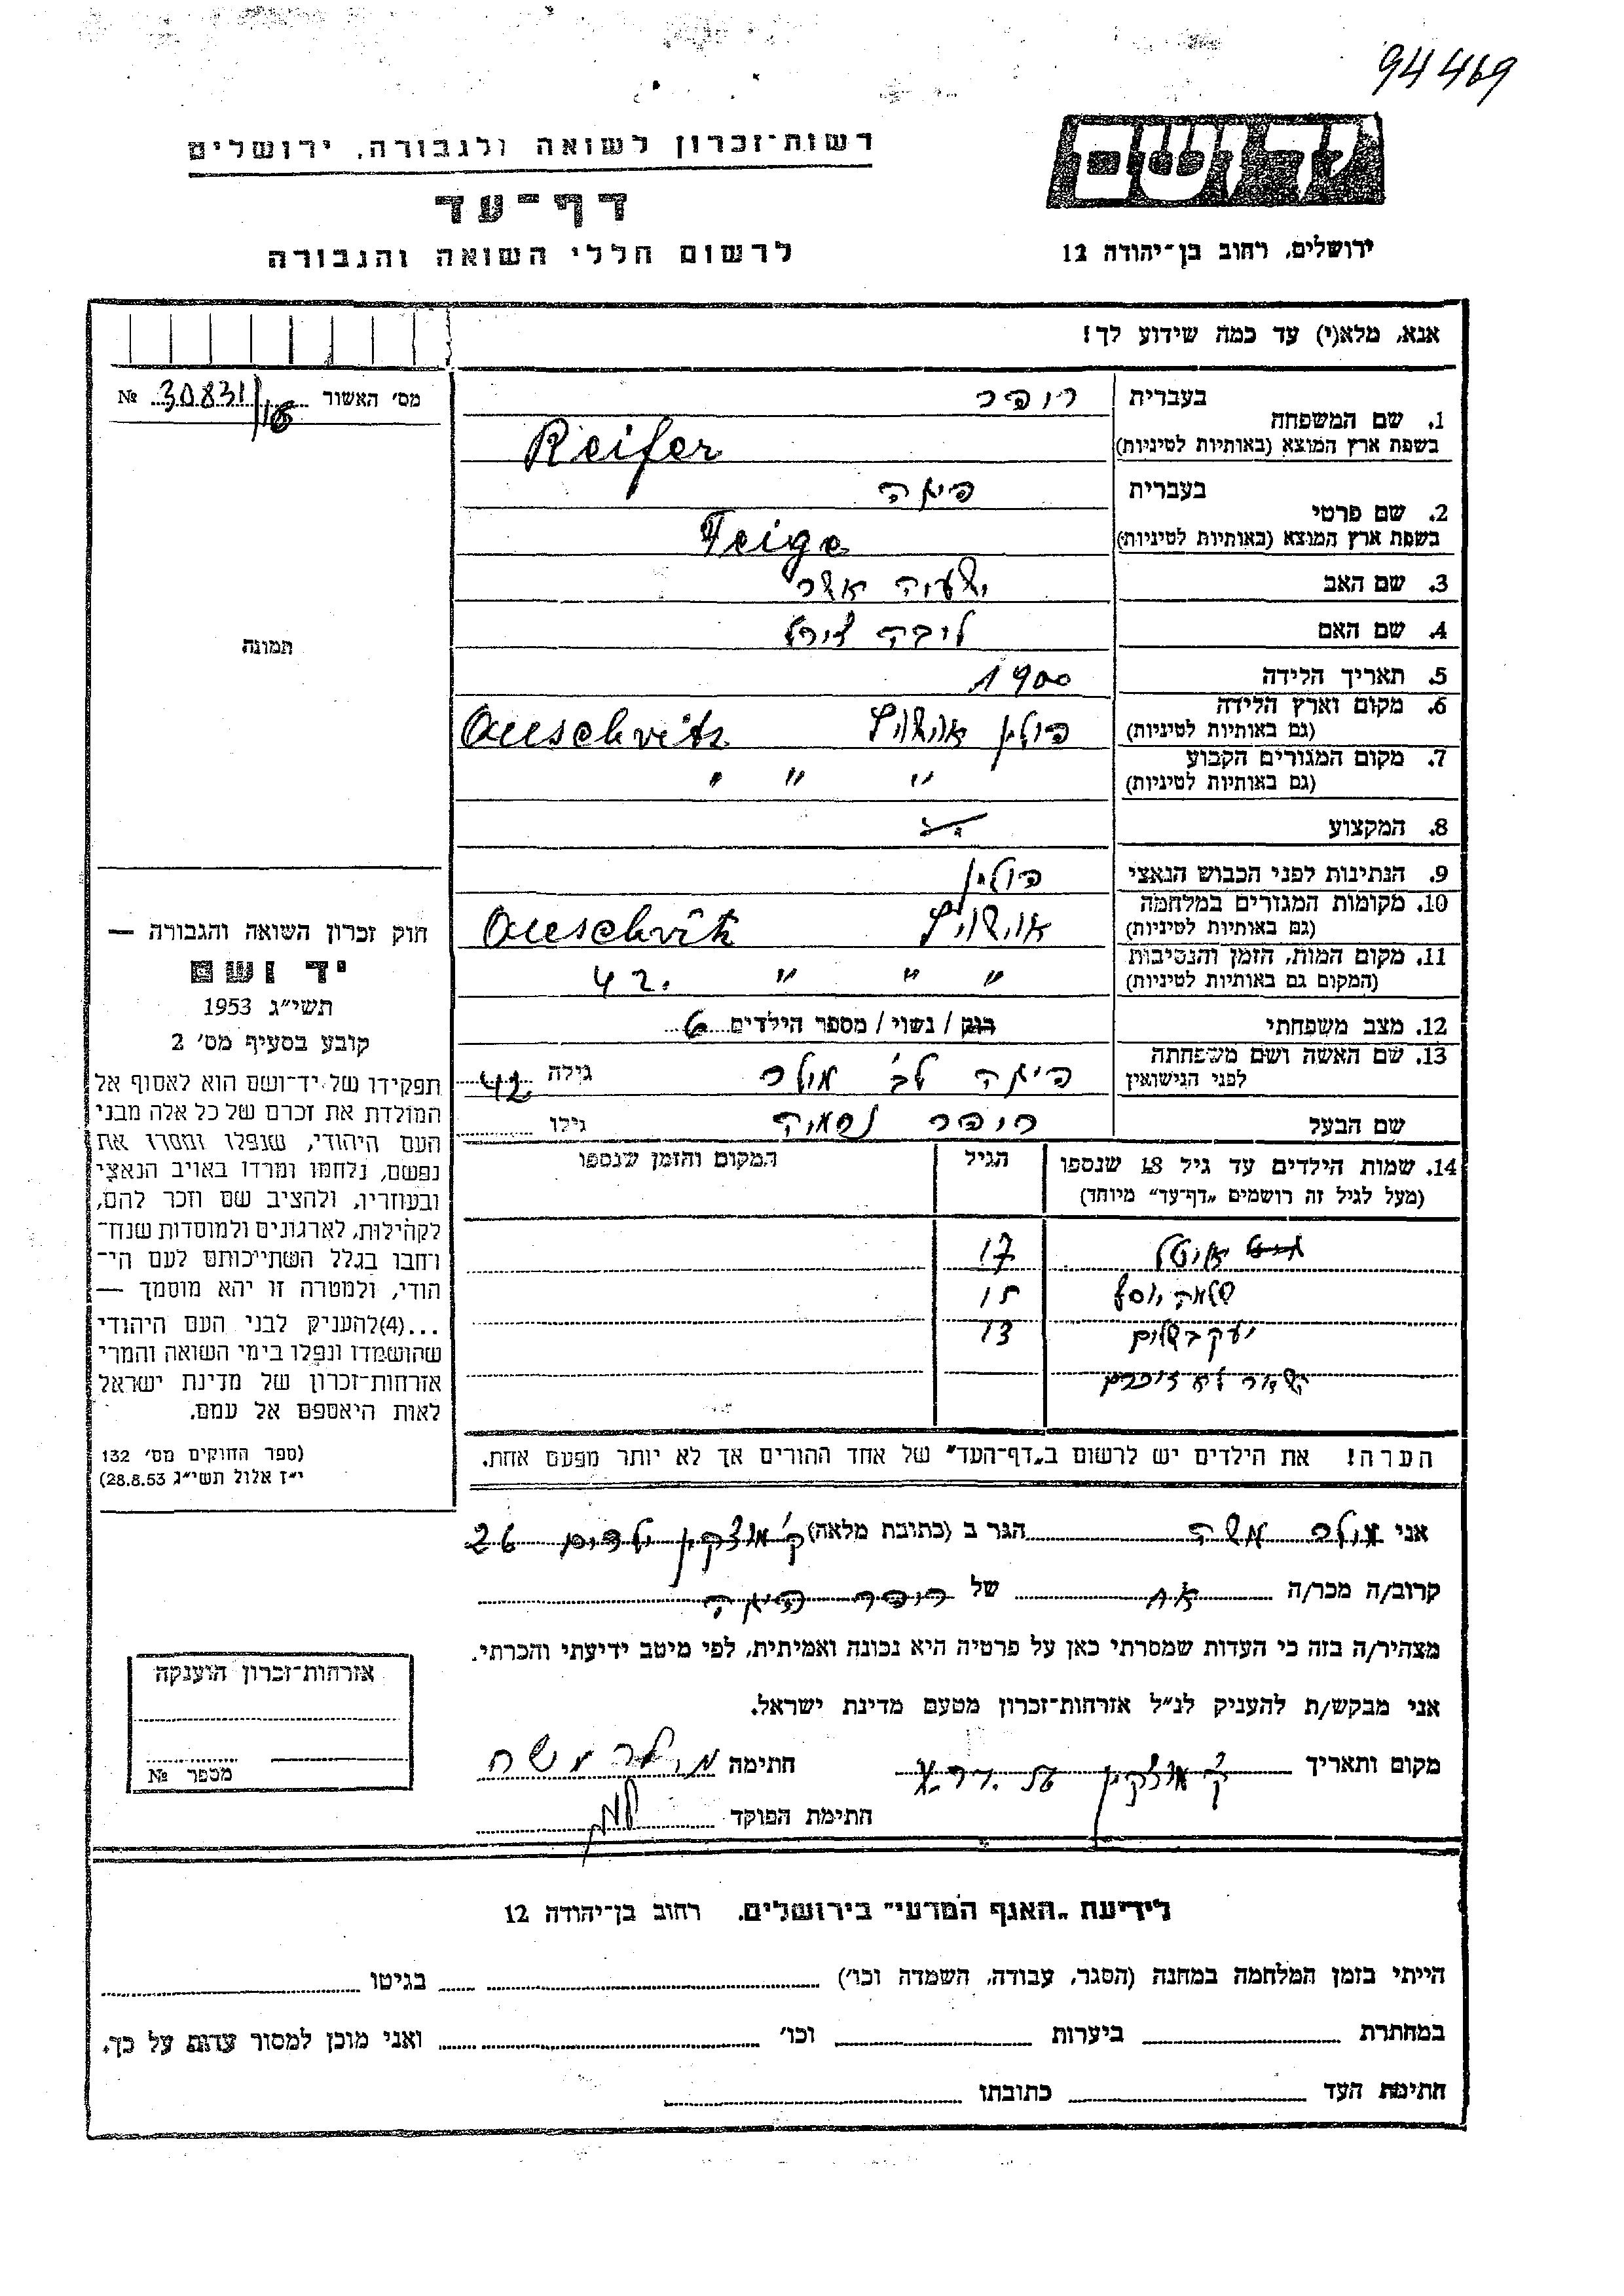 94469
יד ושם
רשות־זכרון לשואה ולגבורה, ירושלים
דף־עד
לרשום חללי השואה והגבורה
ירושלים, רחוב בן־יהודה 12
אנא, מלא(י) עד כמה שידוע לך!
מס׳ האשור 30831/16 №
1. שם המשפחה בעברית
בשפת ארץ המוצא (באותיות לטיניות) Reifer
2. שם פרטי בעברית
בשפת ארץ המוצא (באותיות לטיניות) Feige
3. שם האב ישעיה אשר
4. שם האם ליבה
5. תאריך הלידה 1900
6. מקום וארץ הלידה
(גם באותיות לטיניות) פולין Auschvitz
7. מקום המגורים הקבוע
(גם באותיות לטיניות) " " "
8. המקצוע
9. הנתינות לפני הכבוש הנאצי פולין
10. מקומות המגורים במלחמה
(גם באותיות לטיניות) Auschvitz
11. מקום המות, הזמן והנסיבות
(המקום גם באותיות לטיניות) " " " 42.
12. מצב משפחתי רווק / נשוי / מספר הילדים 6
13. שם האשה ושם משפחתה
לפני הנישואין גילה 42
שם הבעל רייפר נחמיה גילו
14. שמות הילדים עד גיל 18 שנספו הגיל המקום והזמן שנספו
(מעל לגיל זה רושמים „דף־עד״ מיוחד)
17
שלמה יוסף 15
יעקב שלום 13
השאר לא זוכרים
הערה! את הילדים יש לרשום ב„דף־העד״ של אחד ההורים אך לא יותר מפעם אחת.
תמונה
חוק זכרון השואה והגבורה —
יד ושם
תשי״ג 1953
קובע בסעיף מס׳ 2
תפקידו של יד־ושם הוא לאסוף אל
המולדת את זכרם של כל אלה מבני
העם היהודי, שנפלו ומסרו את
נפשם, נלחמו ומרדו באויב הנאצי
ובעוזריו, ולהציב שם וזכר להם,
לקהילות, לארגונים ולמוסדות שנח־
רחבו בגלל השתייכותם לעם הי־
הודי, ולמטרה זו יהא מוסמך —
...(4) להעניק לבני העם היהודי
שהושמדו ונפלו בימי השואה והמרי
אזרחות־זכרון של מדינת ישראל
לאות היאספם אל עמם.
(ספר החוקים מס׳ 132
י״ז אלול תשי״ג 28.8.53)
אני מולר משה הגר ב (כתובת מלאה) ק׳ מוצקין 26
קרוב/ה מכר/ה אח של רייפר פייגה
מצהיר/ה בזה כי העדות שמסרתי כאן על פרטיה היא נכונה ואמיתית, לפי מיטב ידיעתי והכרתי.
אני מבקש/ת להעניק לנ״ל אזרחות־זכרון מטעם מדינת ישראל.
מקום ותאריך ק׳ מוצקין חתימה מולר משה
חתימת הפוקד
אזרחות־זכרון הוענקה
מספר №
לידיעת „האגף המדעי״ בירושלים, רחוב בן־יהודה 12
הייתי בזמן המלחמה במחנה (הסגר, עבודה, השמדה וכו׳) בגיטו
במחתרת ביערות וכו׳ ואני מוכן למסור עדות על כך.
חתימת העד כתובתו